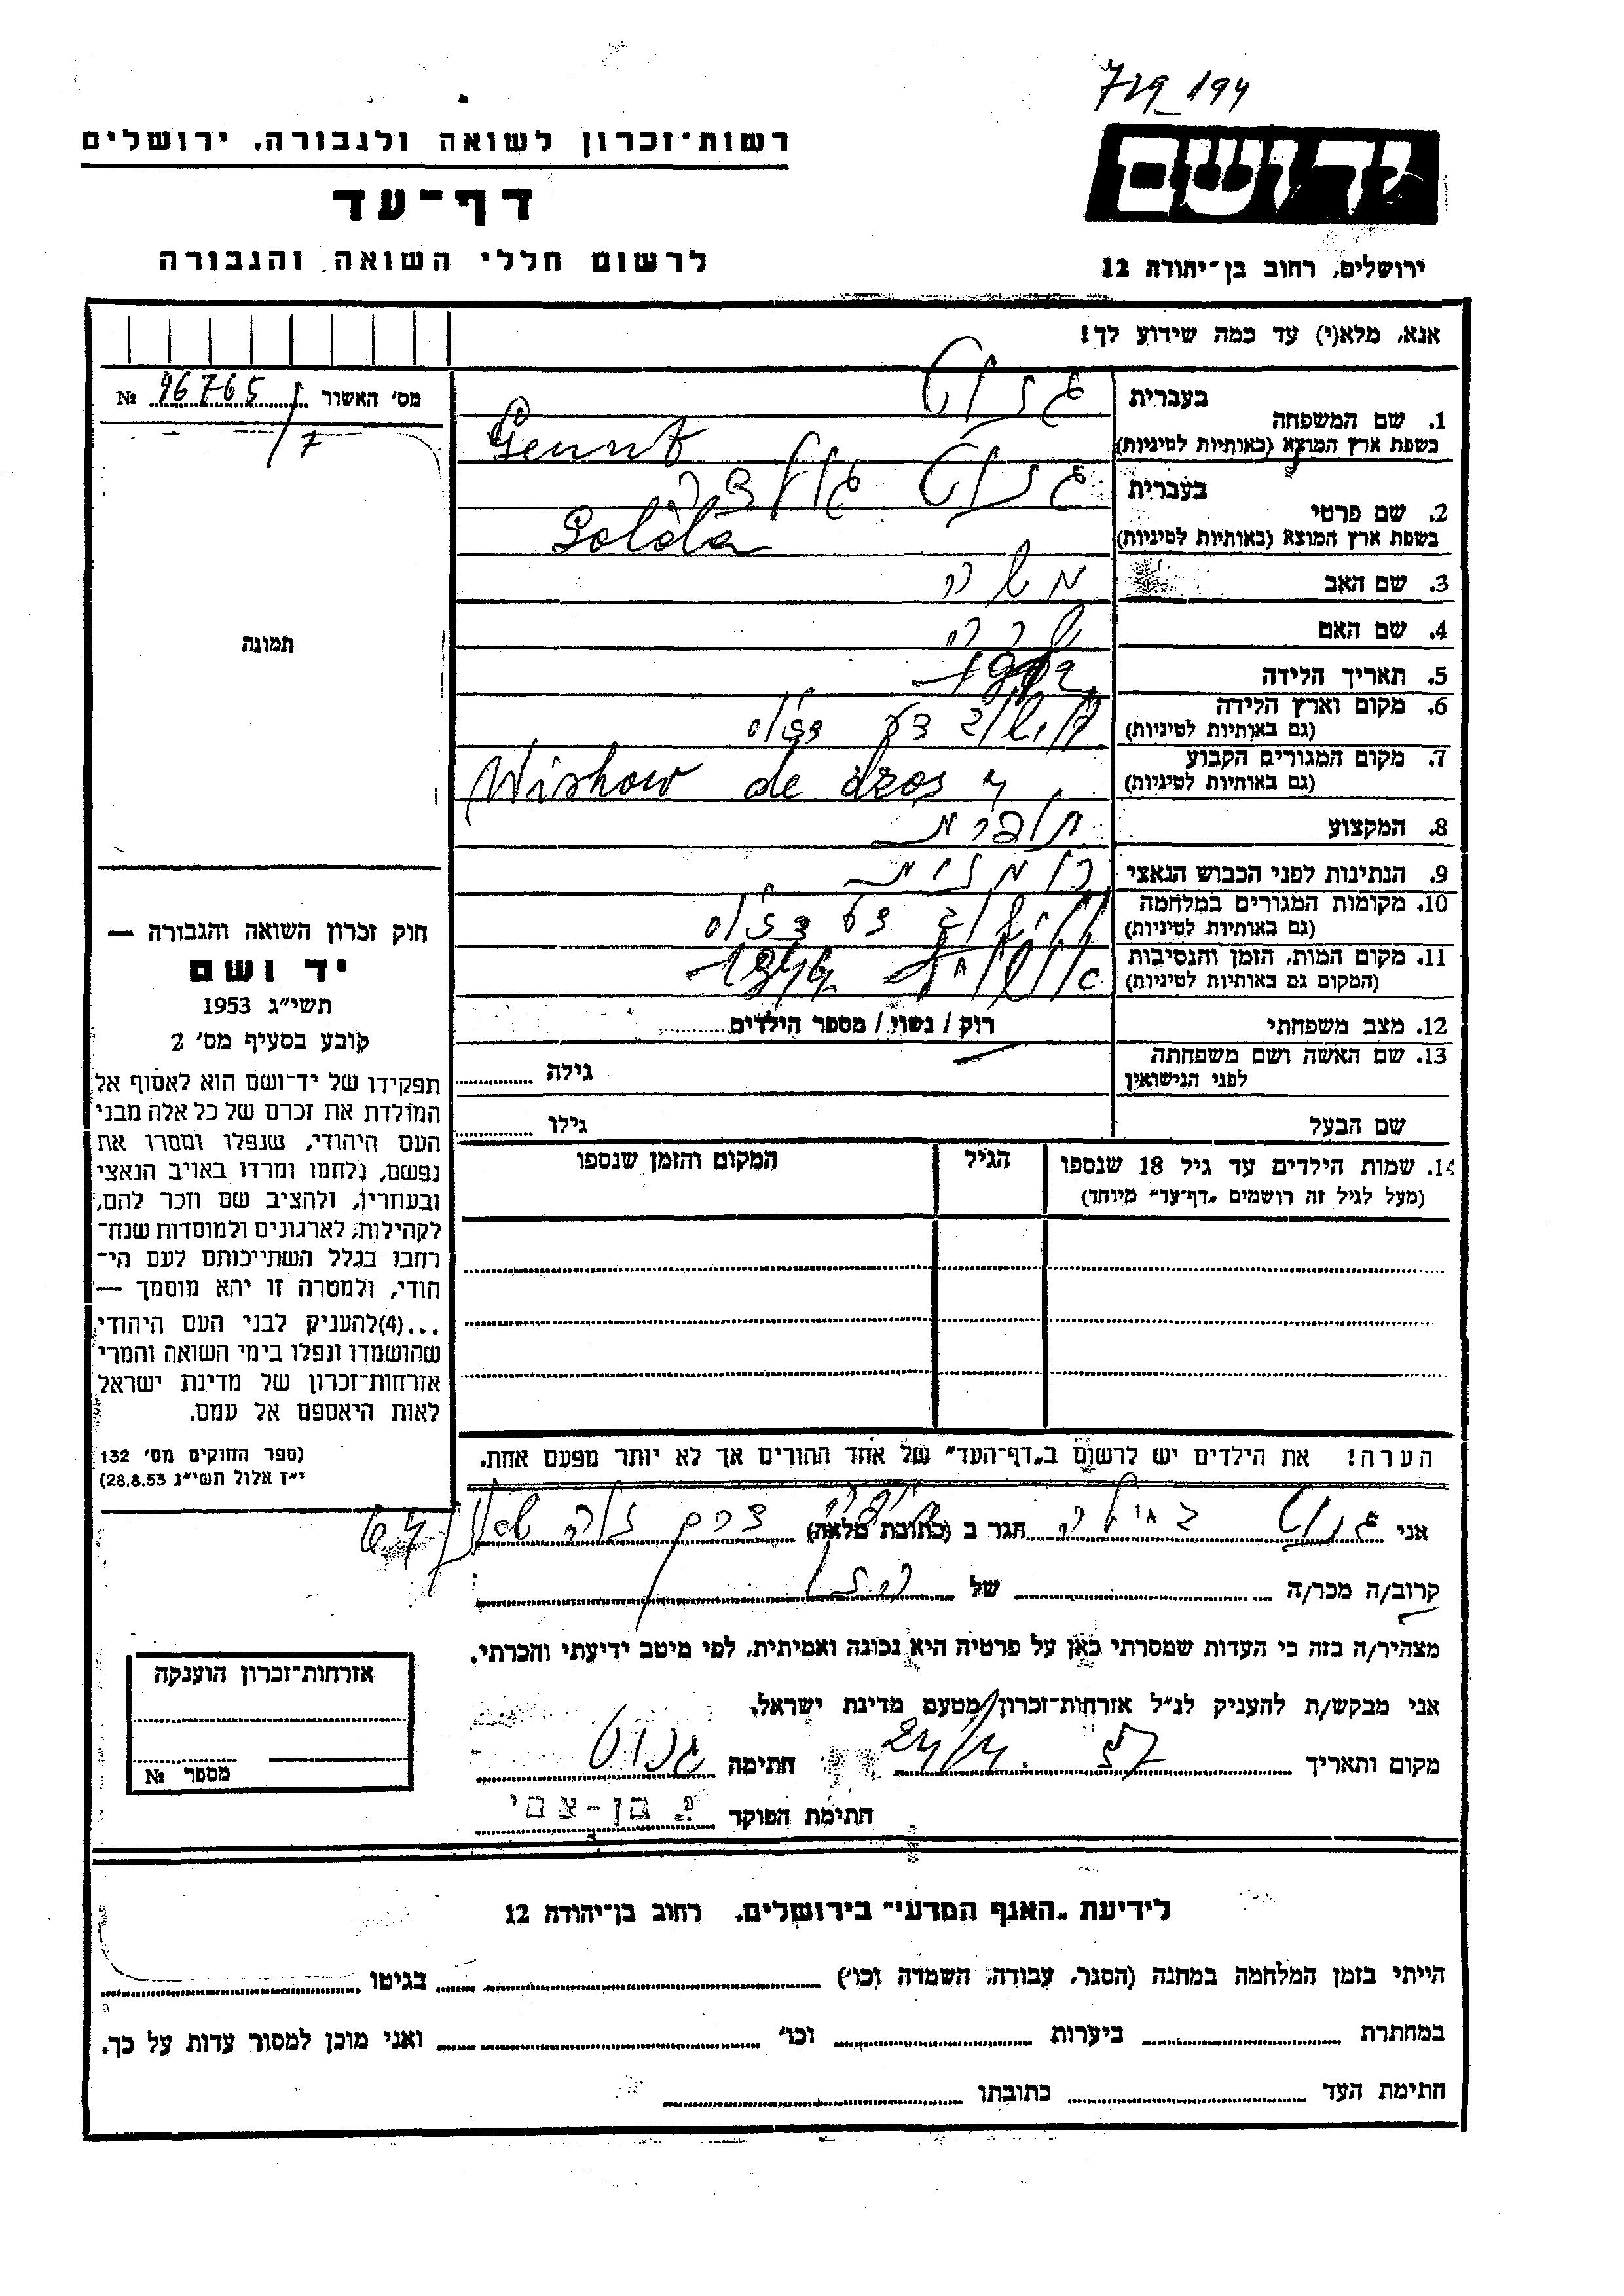 719 194
רשות־זכרון לשואה ולגבורה, ירושלים
יד ושם
דף־עד
לרשום חללי השואה והגבורה
ירושלים, רחוב בן־יהודה 12
אנא, מלא(י) עד כמה שידוע לך!
מס׳ האשור № 96765
7
תמונה
1. שם המשפחה
בעברית
בשפת ארץ המוצא (באותיות לטיניות)
Gennt
2. שם פרטי
בעברית
גולדה
בשפת ארץ המוצא (באותיות לטיניות)
Golda
3. שם האב משה
4. שם האם שרה
5. תאריך הלידה
6. מקום וארץ הלידה
(גם באותיות לטיניות)
7. מקום המגורים הקבוע
(גם באותיות לטיניות)
Wishow de dzos
8. המקצוע תופרת
9. הנתינות לפני הכבוש הנאצי רומנית
10. מקומות המגורים במלחמה
(גם באותיות לטיניות)
11. מקום המות, הזמן והנסיבות
(המקום גם באותיות לטיניות)
1944
12. מצב משפחתי
רוק / נשוי / מספר הילדים
13. שם האשה ושם משפחתה
לפני הנישואין
גילה
שם הבעל
גילו
14. שמות הילדים עד גיל 18 שנספו
(מעל לגיל זה רושמים „דף־עד״ מיוחד)
הגיל
המקום והזמן שנספו
הערה! את הילדים יש לרשום ב„דף־העד״ של אחד ההורים אך לא יותר מפעם אחת.
חוק זכרון השואה והגבורה —
יד ושם
תשי״ג 1953
קובע בסעיף מס׳ 2
תפקידו של יד־ושם הוא לאסוף אל
המולדת את זכרם של כל אלה מבני
העם היהודי, שנפלו ומסרו את
נפשם, נלחמו ומרדו באויב הנאצי
ובעוזריו, ולהציב שם וזכר להם,
לקהילות, לארגונים ולמוסדות שנח־
רחבו בגלל השתייכותם לעם הי־
הודי, ולמטרה זו יהא מוסמך —
...(4)להעניק לבני העם היהודי
שהושמדו ונפלו בימי השואה והמרי
אזרחות־זכרון של מדינת ישראל
לאות היאספם אל עמם.
(ספר החוקים מס׳ 132
י״ז אלול תשי״ג 28.8.53)
אני הגר ב (כתובת מלאה)
קרוב/ה מכר/ה של
מצהיר/ה בזה כי העדות שמסרתי כאן על פרטיה היא נכונה ואמיתית, לפי מיטב ידיעתי והכרתי.
אני מבקש/ת להעניק לנ״ל אזרחות־זכרון מטעם מדינת ישראל.
מקום ותאריך 24/4. 57 חתימה
חתימת הפוקד בן-צבי
אזרחות־זכרון הוענקה
מספר №
לידיעת „האגף המדעי״ בירושלים, רחוב בן־יהודה 12
הייתי בזמן המלחמה במחנה (הסגר, עבודה, השמדה וכו׳) בגיטו
במחתרת ביערות וכו׳ ואני מוכן למסור עדות על כך.
חתימת העד כתובתו